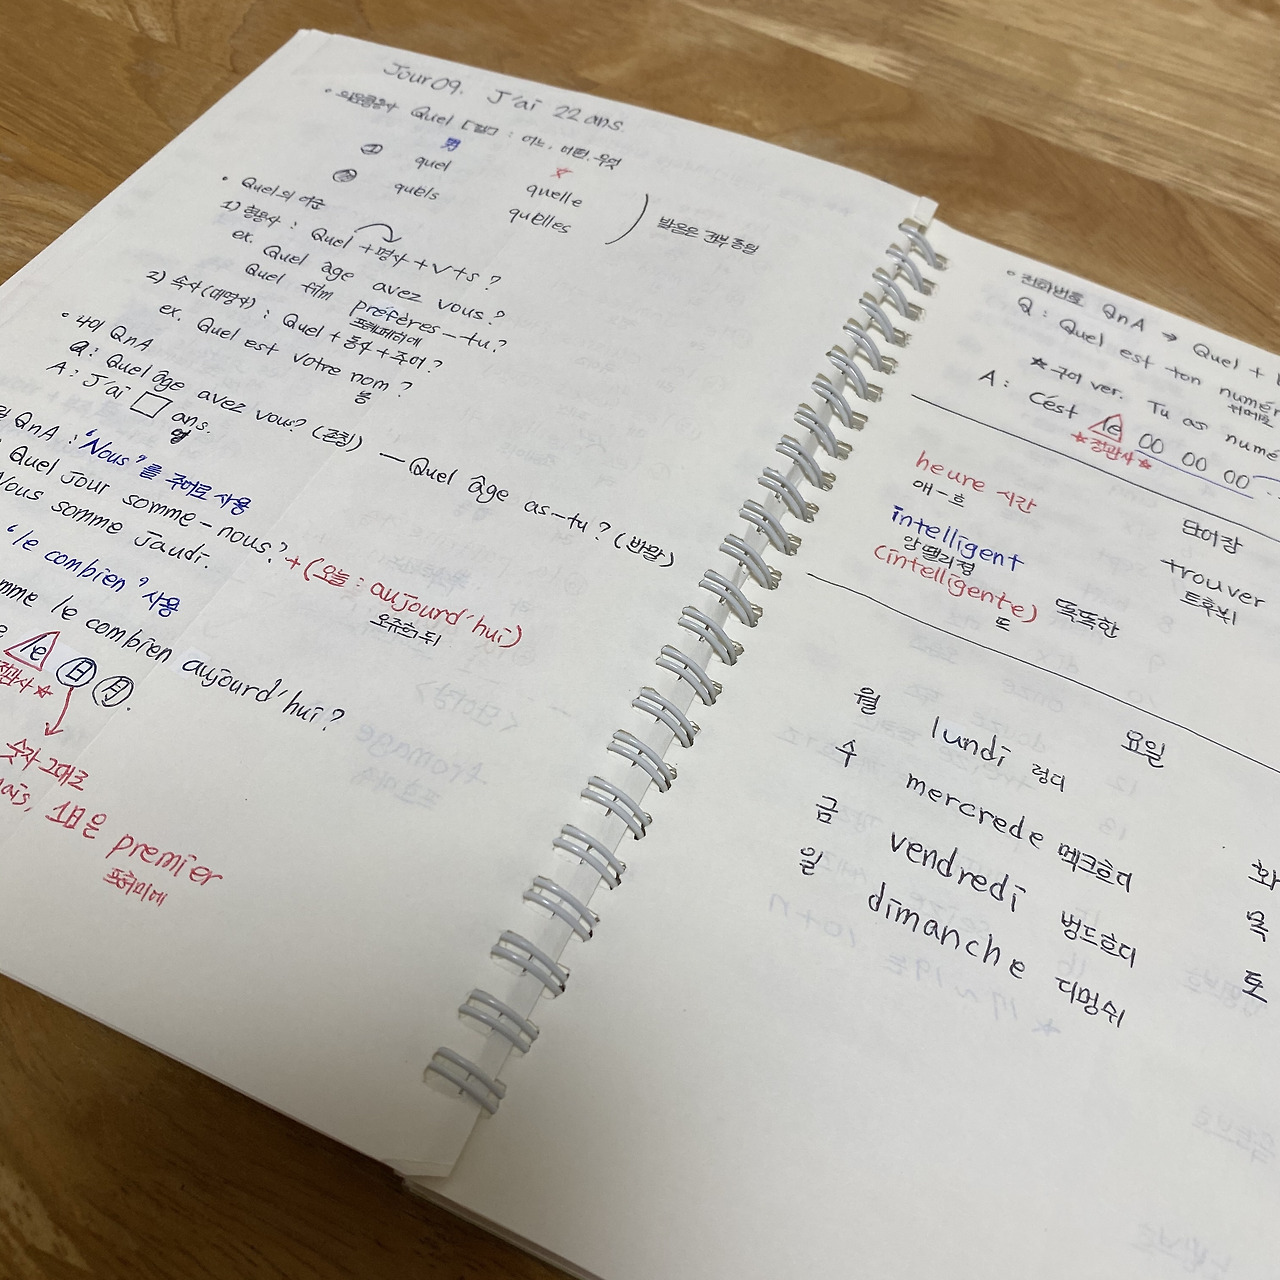 Jour 09. J'ai 22 ans.
• 의문형용사 Quel [껠] : 어느, 어떤, 무엇
男 女
quel quelle
quels quelles
발음은 전부 동일
• Quel의 어순
1) 형용사 : Quel + 명사 + V + S ?
ex. Quel âge avez vous?
Quel film préfères-tu?
프헤페흐
2) 속사(대명사) : Quel + 동사 + 주어?
ex. Quel est votre nom?
농
• 나이 QnA
Q: Quel âge avez vous? (존칭) — Quel âge as-tu? (반말)
A: J'ai □ ans.
엉
QnA : 'Nous'를 주어로 사용
Quel Jour somme-nous? + (오늘 : aujourd'hui)
오쥬흐뒤
Nous somme Jaudi.
'le combien' 사용
le combien aujourd'hui?
le 日 月.
정관사★
숫자 그대로
mais, 1日은 premier
프허미에
• 전화번호 QnA → Quel +
Q : Quel est ton numér
★구어 ver. Tu as numé
A : Cést le 00 00 00
★정관사★
heure 시간
애-흐
단어장
intelligent
앙뗄리정
(intelligente) 똑똑한
뜨
trouver
트후붸
요일
월 lundi 렁디
수 mercrede 멕크흐디
금 vendredi 벙드흐디
일 dimanche 디멍쉬
화
목
토